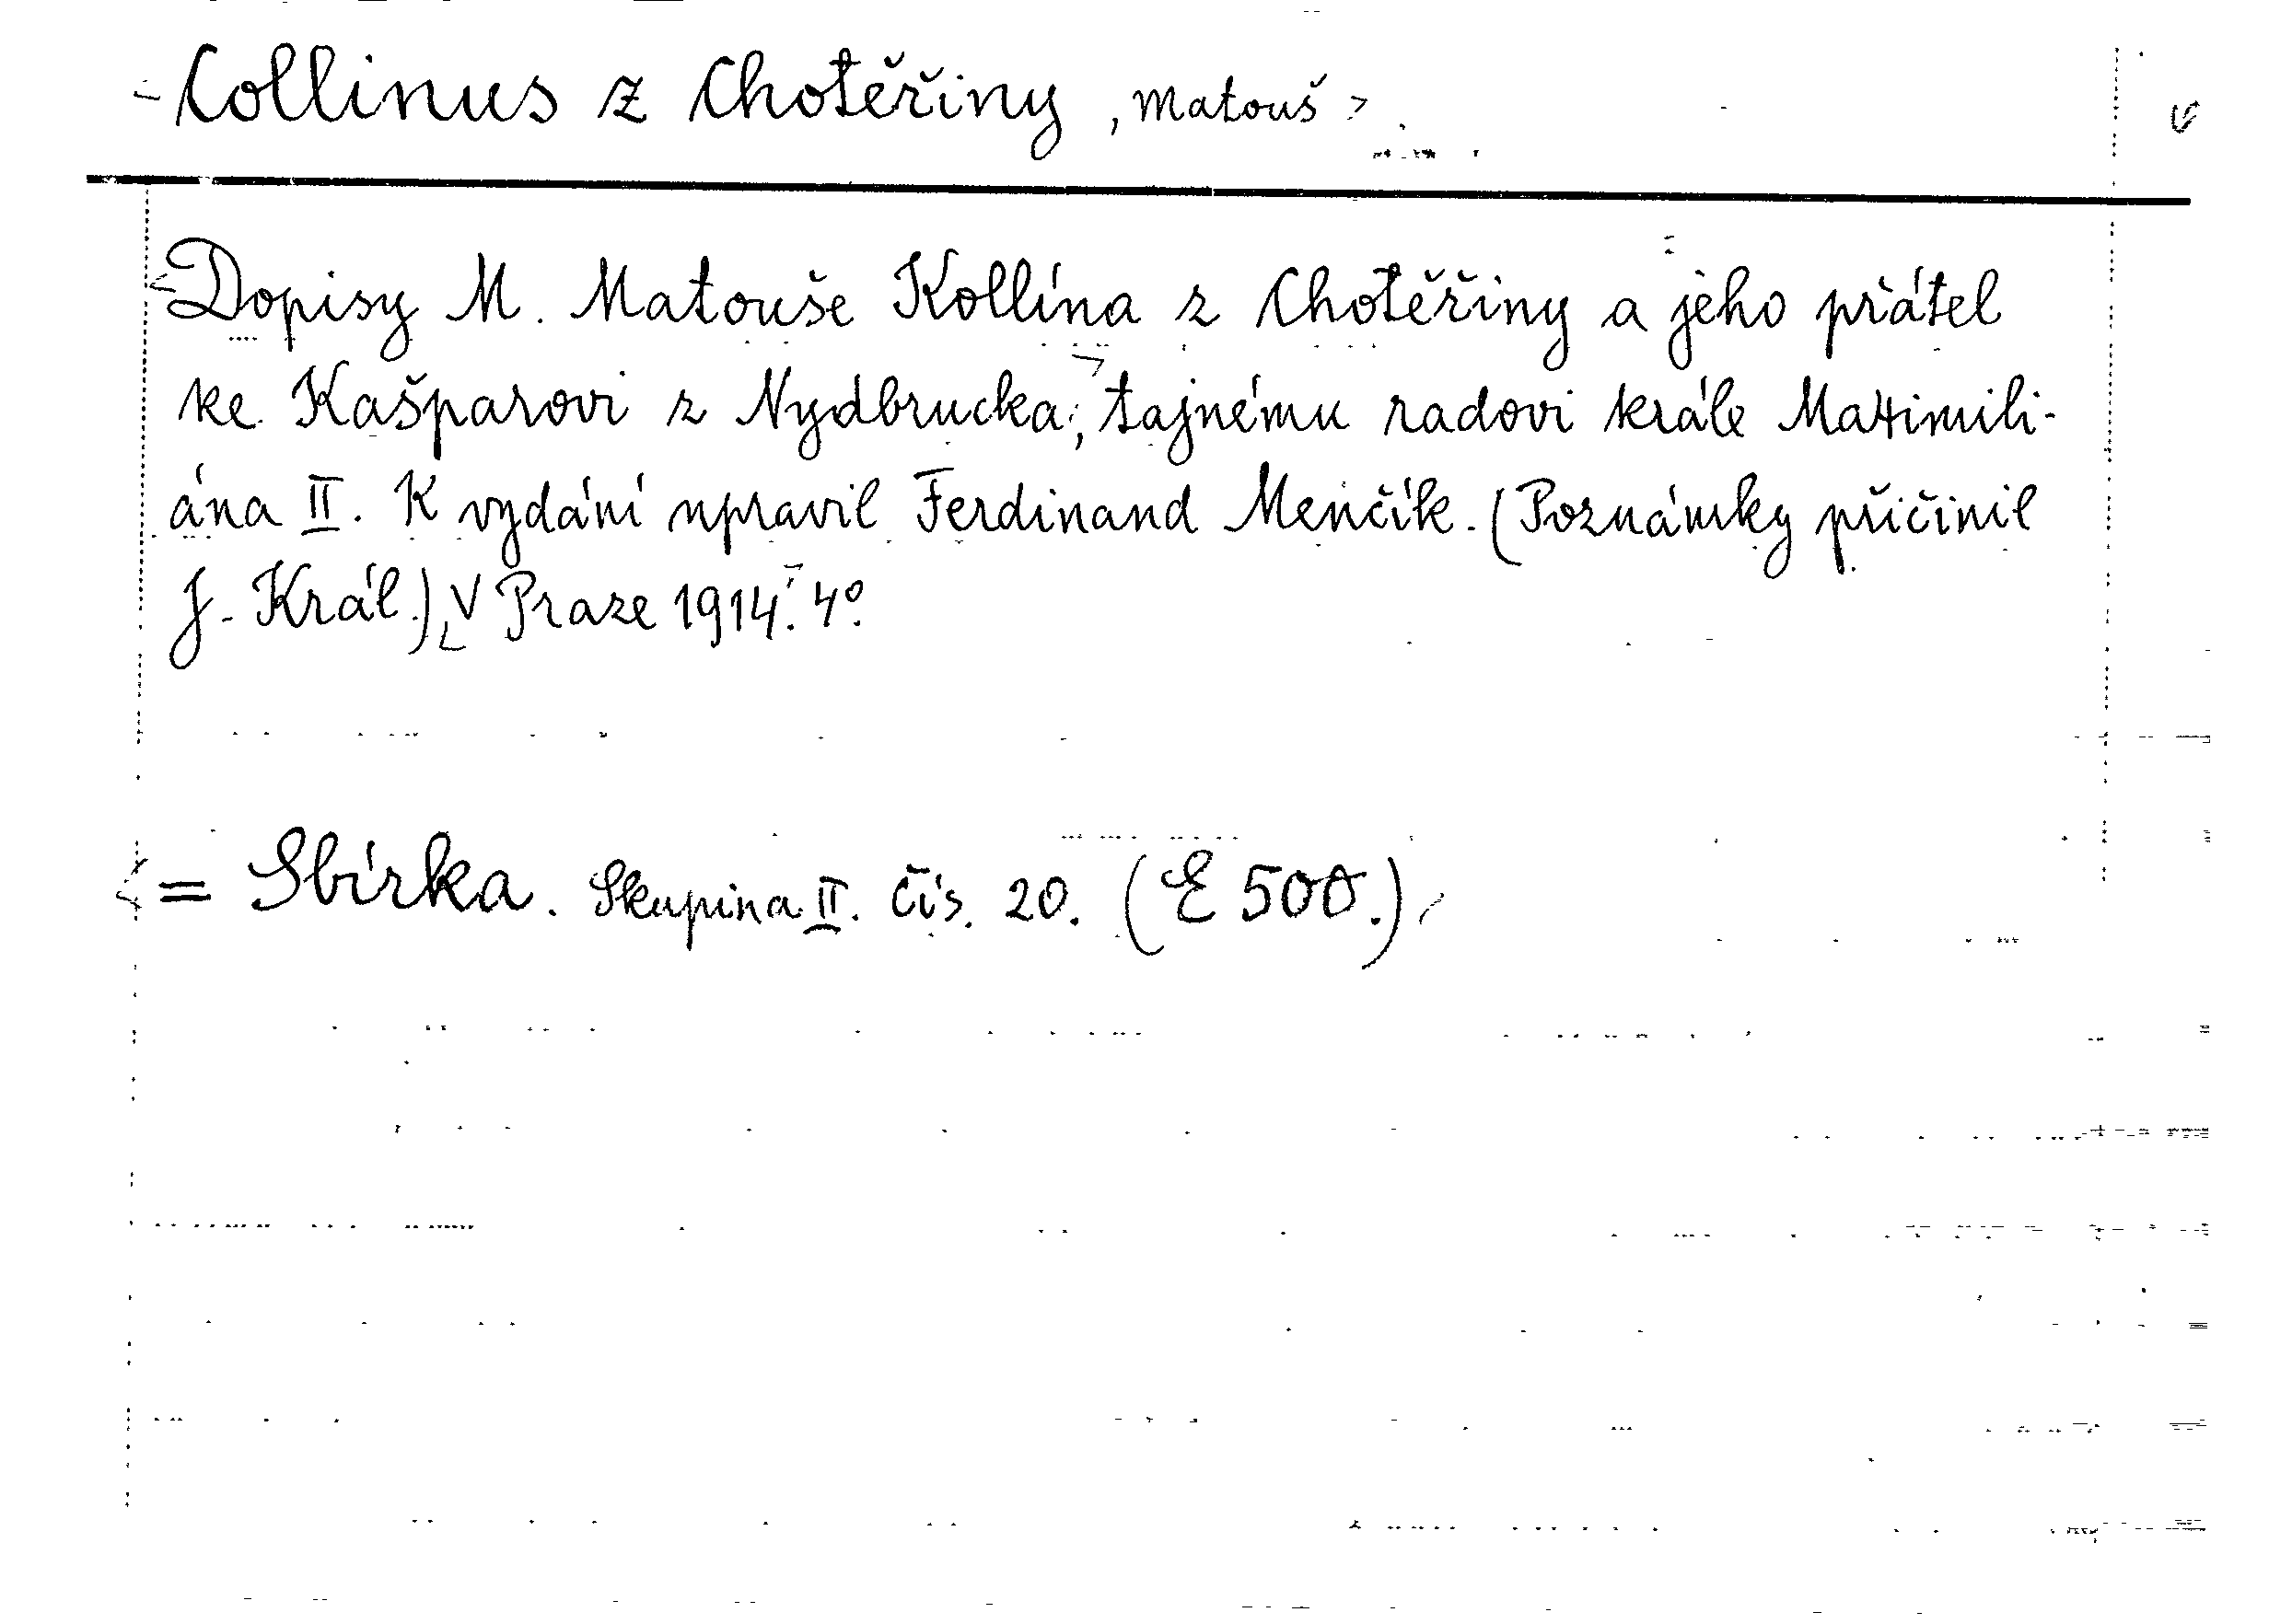 Collinus z Chotěřiny, Matouš
Dopisy M. Matouše Kollína z Chotěřiny a jeho přátel
ke Kašparovi z Nydbrucka, tajnému radovi krále Maximili-
ána II. K vydání upravil Ferdinand Menčík. (Poznámky přičinil
J. Král.) V Praze 1914. 4º.
= Sbírka. Skupina II. Čís. 20. (E 500.)